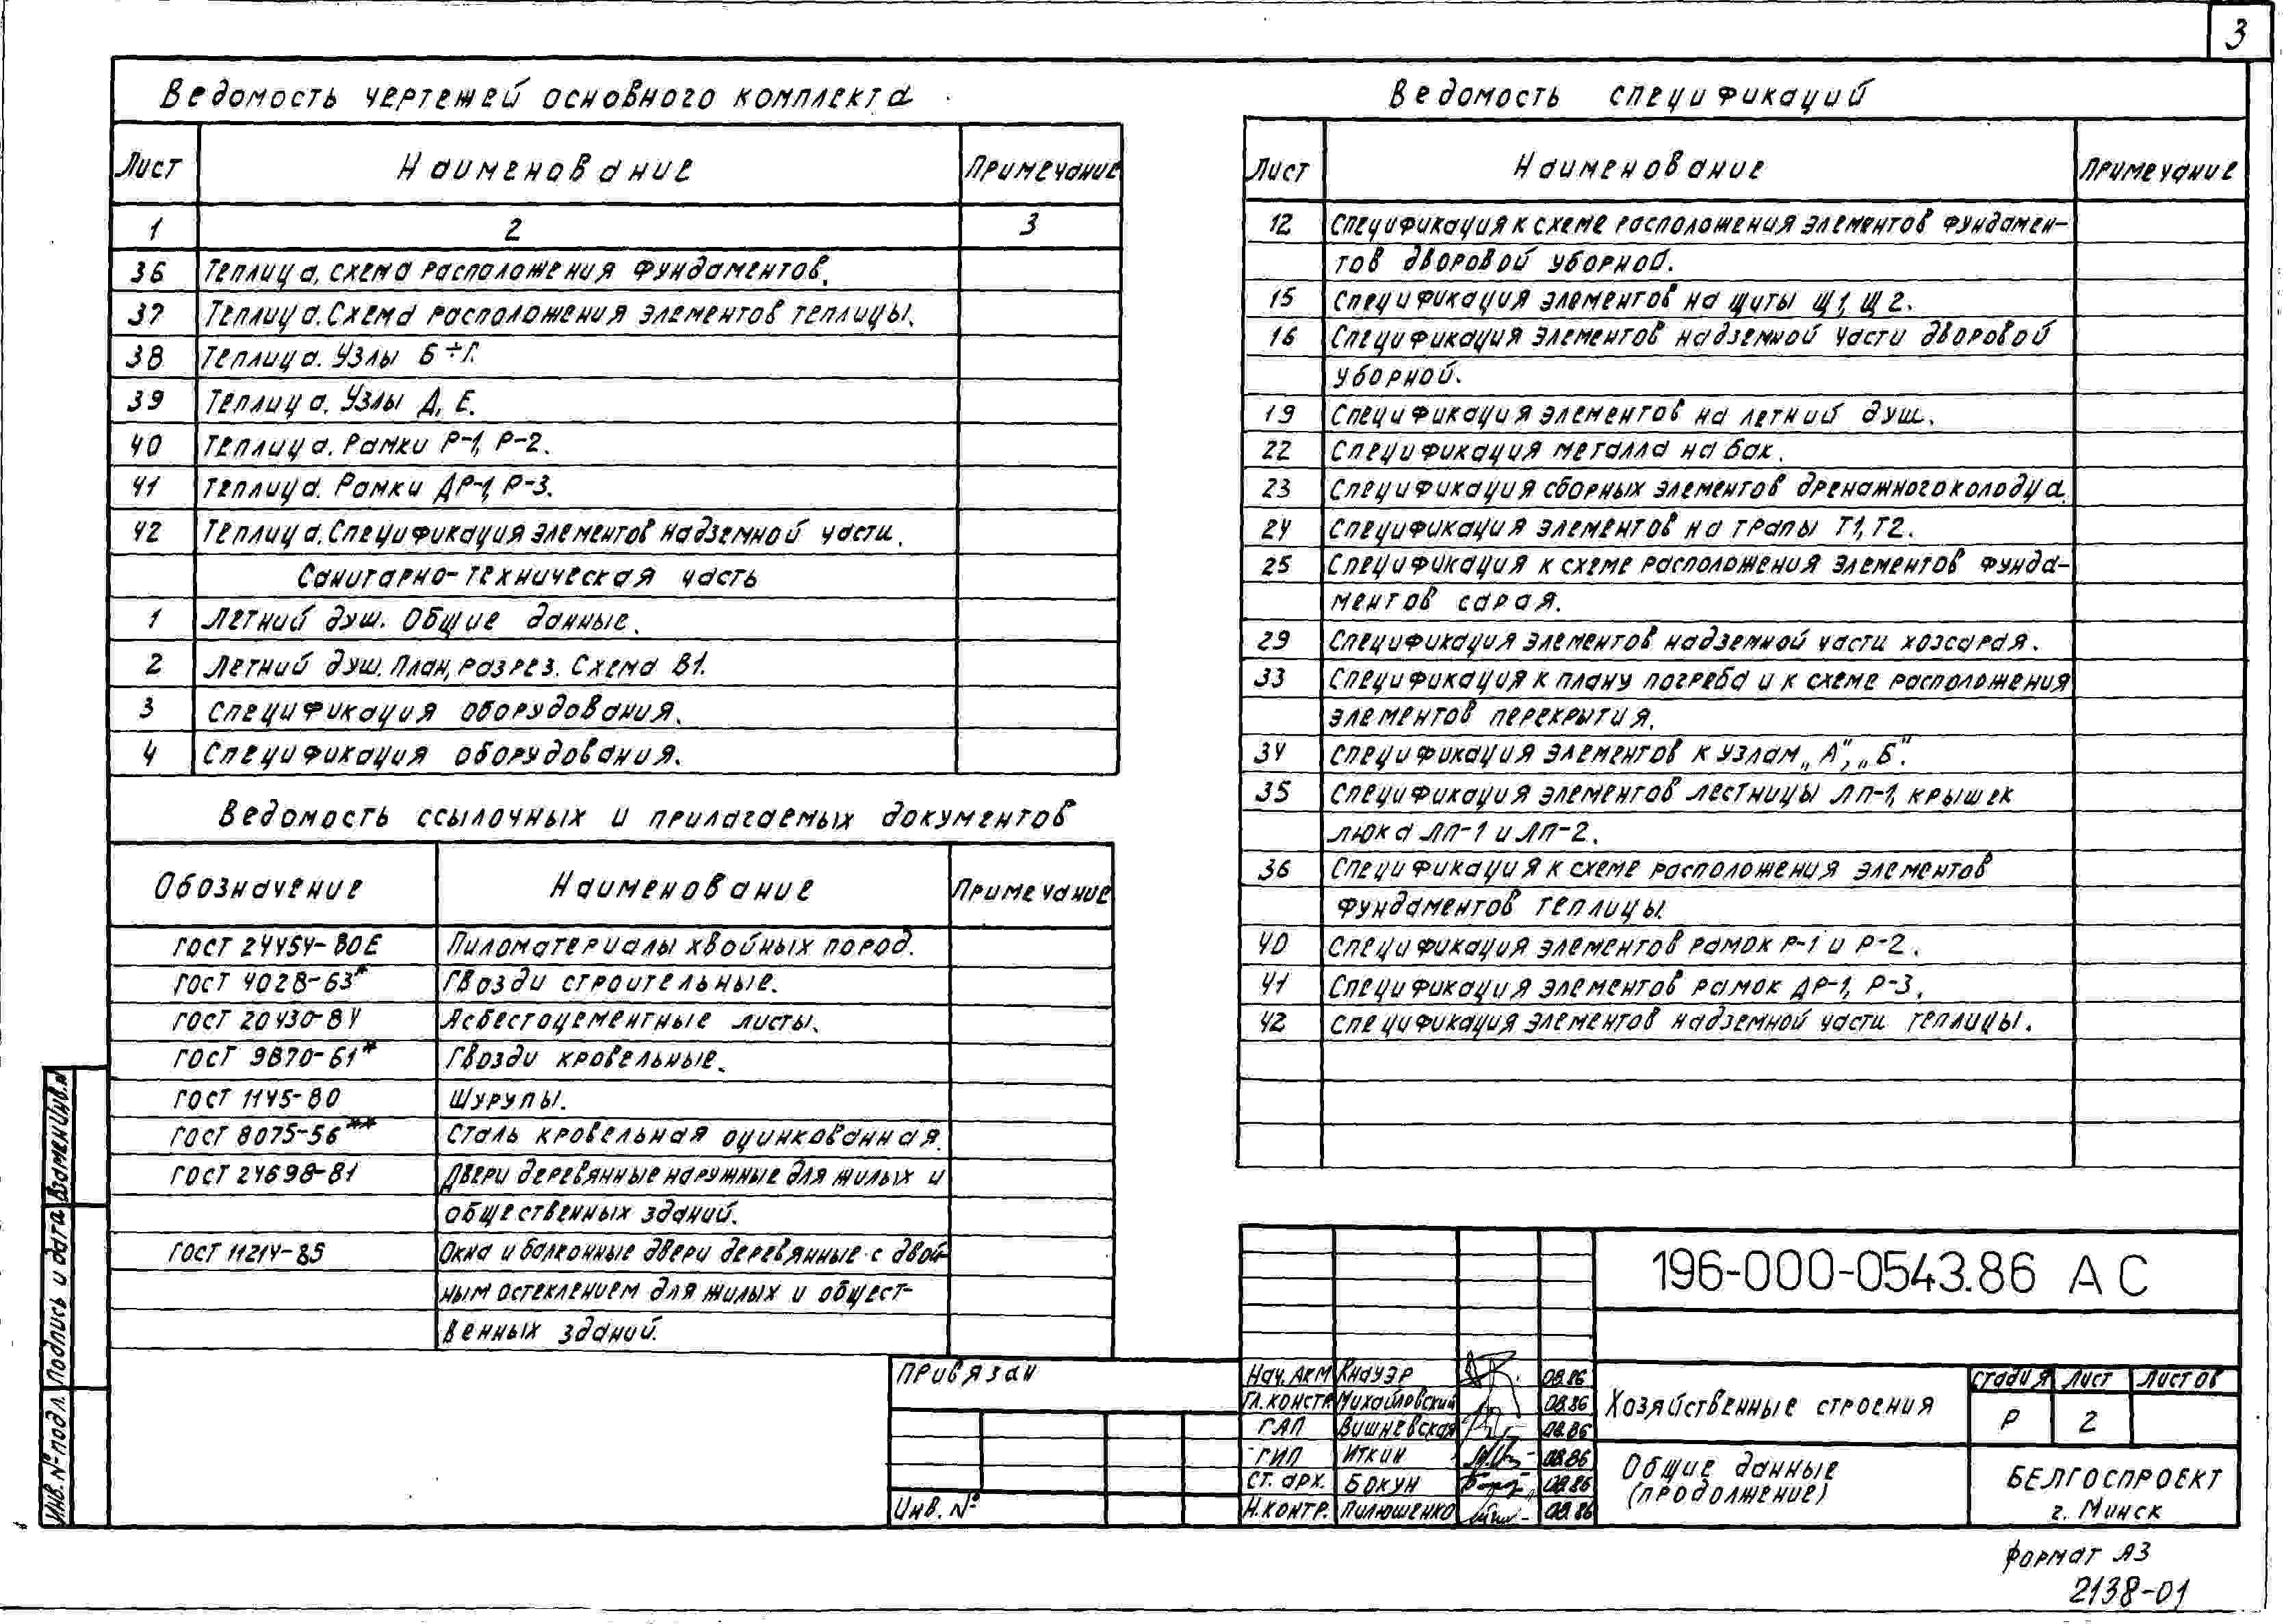 3
Ведомость чертежей основного комплекта
Лист Наименование Примечание
1 2 3
36 Теплица. Схема расположения фундаментов.
37 Теплица. Схема расположения элементов теплицы.
38 Теплица. Узлы Б÷Г.
39 Теплица. Узлы Д, Е.
40 Теплица. Рамки Р-1, Р-2.
41 Теплица. Рамки ДР-1, Р-3.
42 Теплица. Спецификация элементов надземной части.
Санитарно-техническая часть
1 Летний душ. Общие данные.
2 Летний душ. План, разрез. Схема В1.
3 Спецификация оборудования.
4 Спецификация оборудования.
Ведомость ссылочных и прилагаемых документов
Обозначение Наименование Примечание
ГОСТ 24454-80Е Пиломатериалы хвойных пород.
ГОСТ 4028-63* Гвозди строительные.
ГОСТ 20430-84 Асбестоцементные листы.
ГОСТ 9870-61* Гвозди кровельные.
ГОСТ 1145-80 Шурупы.
ГОСТ 8075-56** Сталь кровельная оцинкованная.
ГОСТ 24698-81 Двери деревянные наружные для жилых и
общественных зданий.
ГОСТ 11214-85 Окна и балконные двери деревянные с двой-
ным остеклением для жилых и общест-
венных зданий.
Ведомость спецификаций
Лист Наименование Примечание
12 Спецификация к схеме расположения элементов фундамен-
тов дворовой уборной.
15 Спецификация элементов на щиты Щ1, Щ2.
16 Спецификация элементов надземной части дворовой
уборной.
19 Спецификация элементов на летний душ.
22 Спецификация металла на бак.
23 Спецификация сборных элементов дренажного колодца
24 Спецификация элементов на трапы Т1, Т2.
25 Спецификация к схеме расположения элементов фунда-
ментов сарая.
29 Спецификация элементов надземной части хозсарая.
33 Спецификация к плану погреба и к схеме расположения
элементов перекрытия.
34 Спецификация элементов к узлам „А", „Б".
35 Спецификация элементов лестницы ЛП-1, крышек
люка ЛП-1 и ЛП-2.
36 Спецификация к схеме расположения элементов
фундаментов теплицы.
40 Спецификация элементов рамок Р-1 и Р-2.
41 Спецификация элементов рамок ДР-1, Р-3.
42 Спецификация элементов надземной части теплицы.
Инв. № подл. Подпись и дата Взамен инв. №
Привязан
Инв. №
196-000-0543.86 АС
Нач. АКМ Кнауэр 08.86
Гл. констр. Михайловский 08.86
ГАП Вишневская 08.86
ГИП Иткин 08.86
Ст. арх. Бокун 08.86
Н. контр. Пилюшенко 08.86
Хозяйственные строения
Стадия Лист Листов
Р 2
Общие данные
(продолжение)
БЕЛГОСПРОЕКТ
г. Минск
Формат А3
2138-01